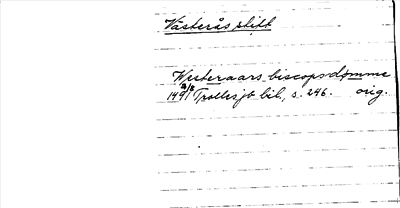 Västerås stift
Westeraars biscopsdømme
1491 2/8 Trollesjö bil., s. 246. orig.